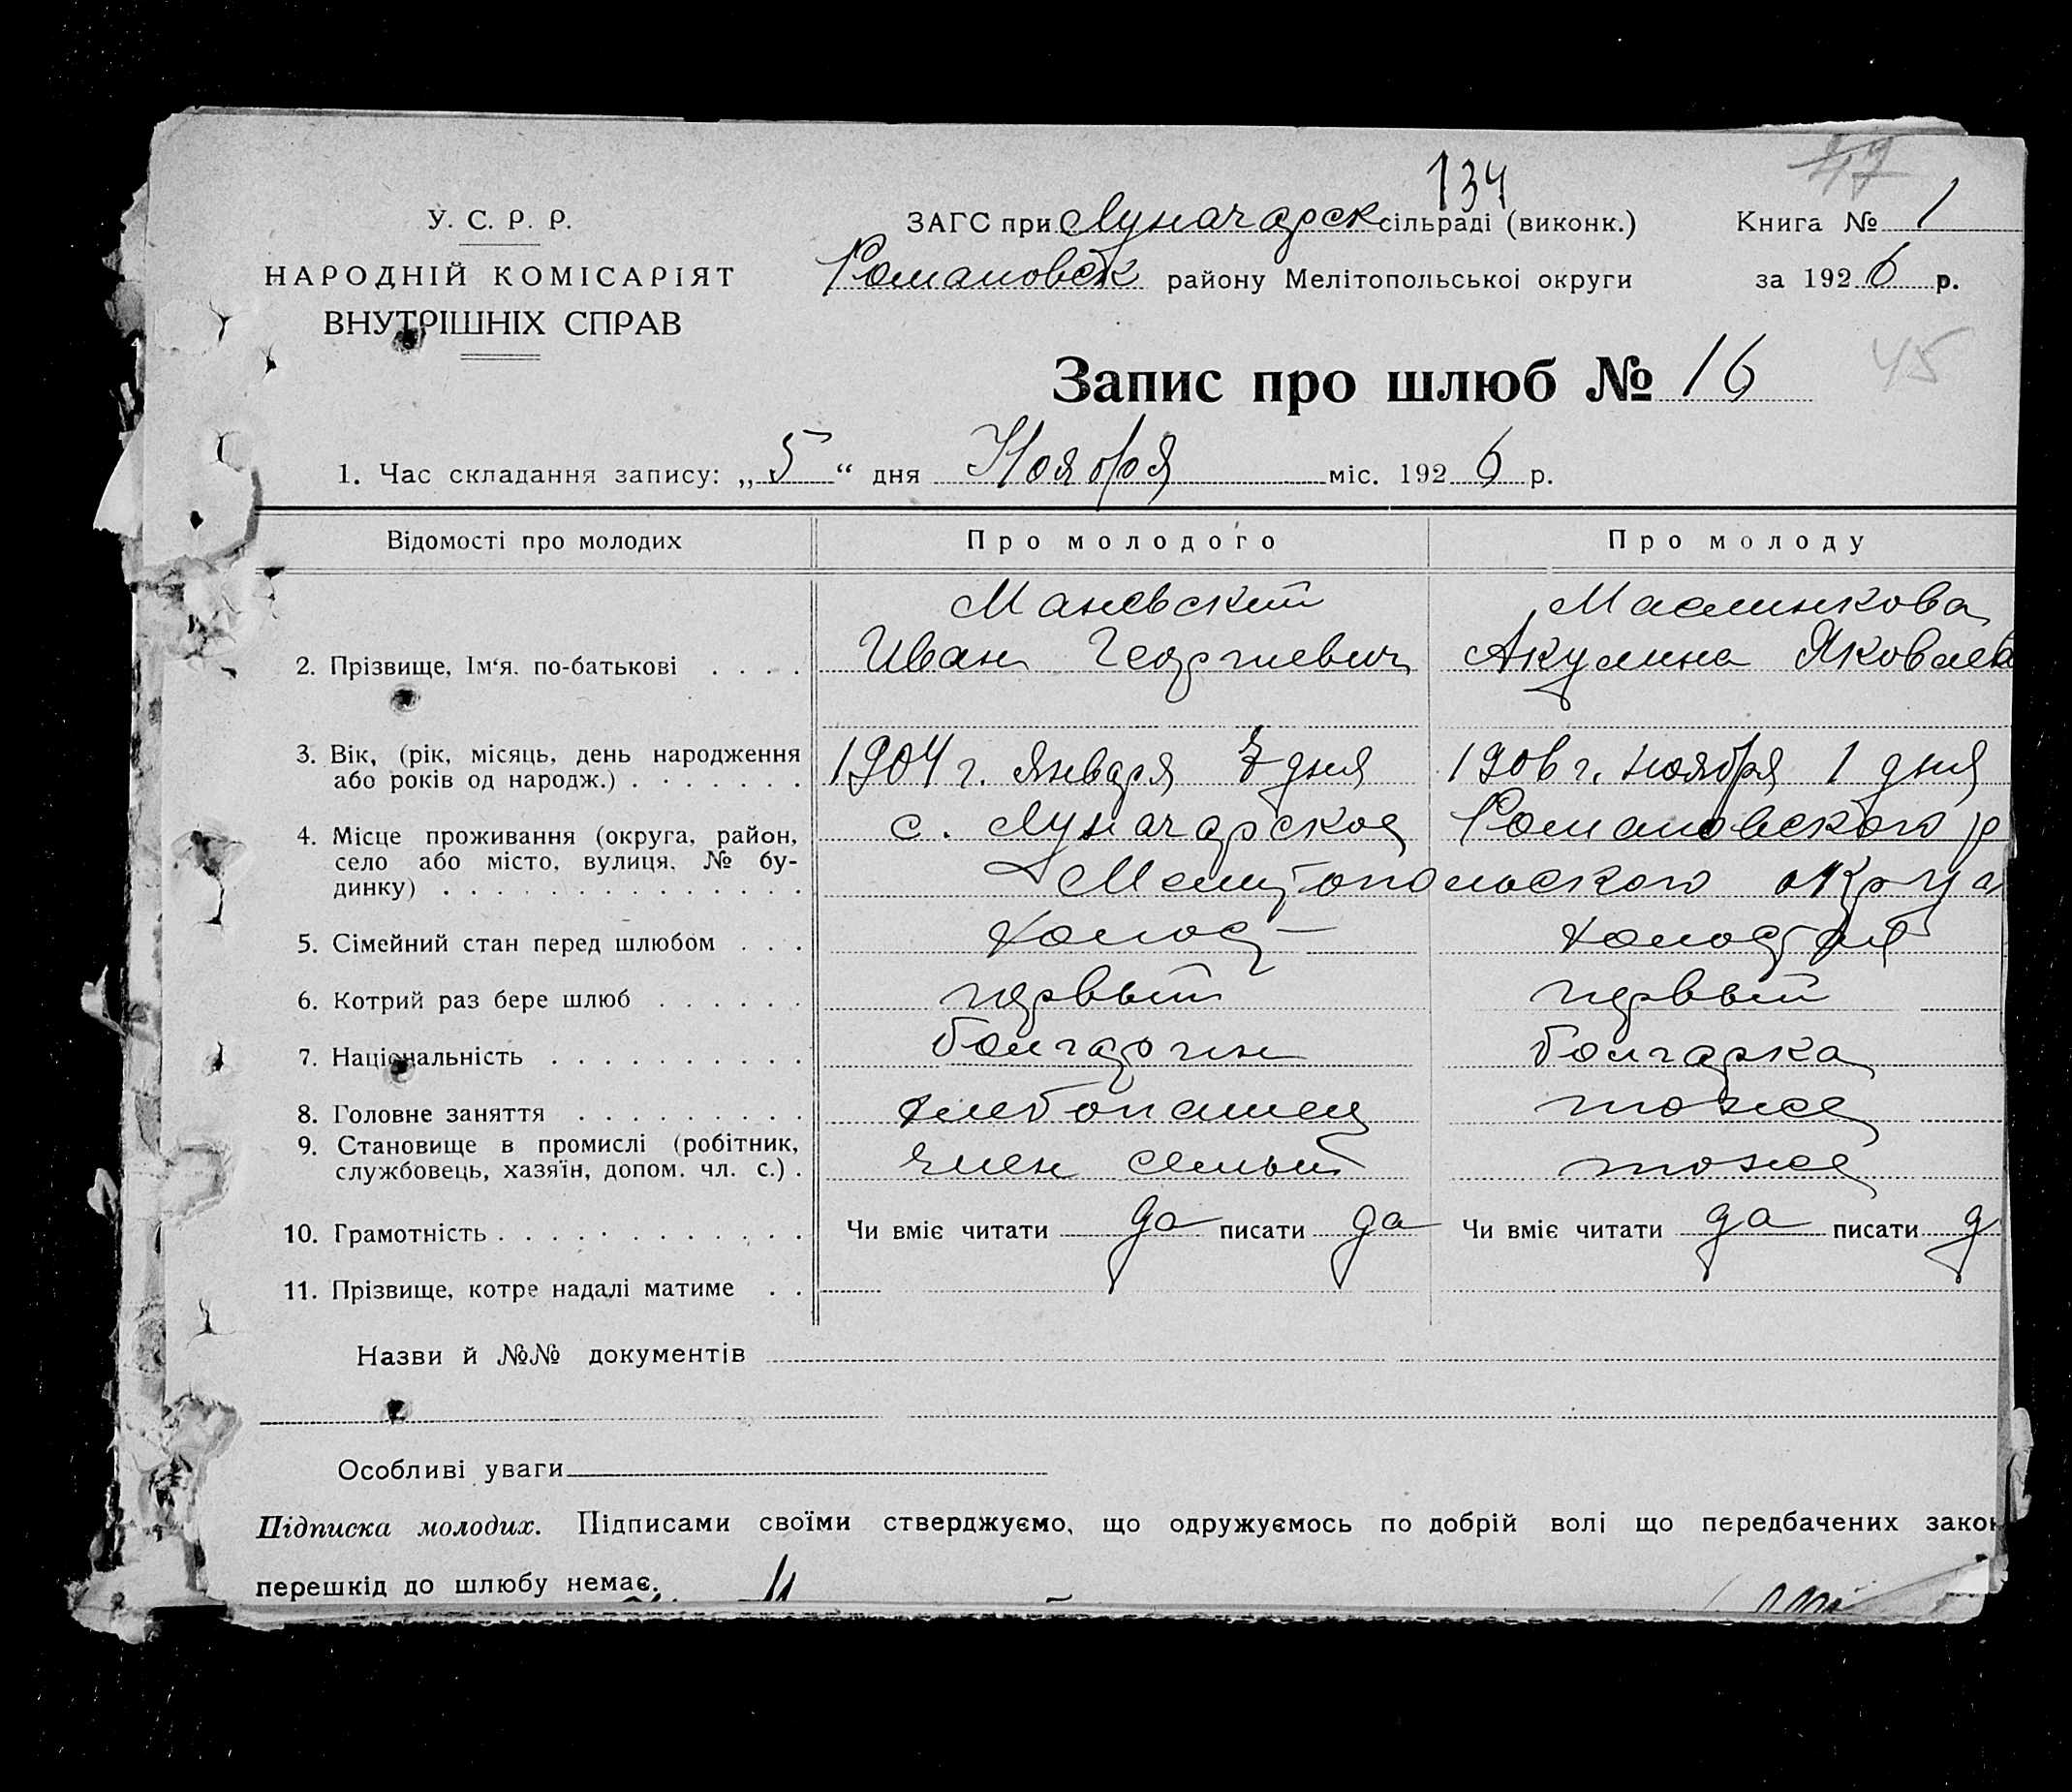 134
47
У. С. Р. Р.
ЗАГС при Луначарск сільраді (виконк.)
Книга № 1
НАРОДНІЙ КОМІСАРІЯТ
Романовск району Мелітопольської округи
за 1926 р.
ВНУТРІШНІХ СПРАВ
Запис про шлюб № 16
45
1. Час складання запису: „5“ дня Ноября міс. 1926 р.
Відомості про молодих
Про молодого
Про молоду
Маневский
Маслинкова
2. Прізвище, Ім‘я. по-батькові . . . .
Иван Георгиевич
Акулина Яковлев
3. Вік, (рік, місяць, день народження
або років од народж.) . . . . . . .
1904 г. января 7 дня
1906 г. ноября 1 дня
4. Місце проживання (округа, район,
село або місто, вулиця, № бу-
динку) . . . . . . . . . . . . . .
с. Луначарское Романовского р
Мелитопольского округа
5. Сімейний стан перед шлюбом . . .
холост
холостая
6. Котрий раз бере шлюб . . . . . .
первый
первый
7. Національність . . . . . . . . . .
болгарин
болгарка
8. Головне заняття . . . . . . . . .
хлебопашец
тоже
9. Становище в промислі (робітник,
службовець, хазяїн, допом. чл. с.) .
член семьи
тоже
10. Грамотність . . . . . . . . . . . .
Чи вміє читати да писати да
Чи вміє читати да писати д
11. Прізвище, котре надалі матиме . .
Назви й №№ документів
Особливі уваги
Підписка молодих. Підписами своїми стверджуємо, що одружуємось по добрій волі що передбачених закон
перешкід до шлюбу немає.